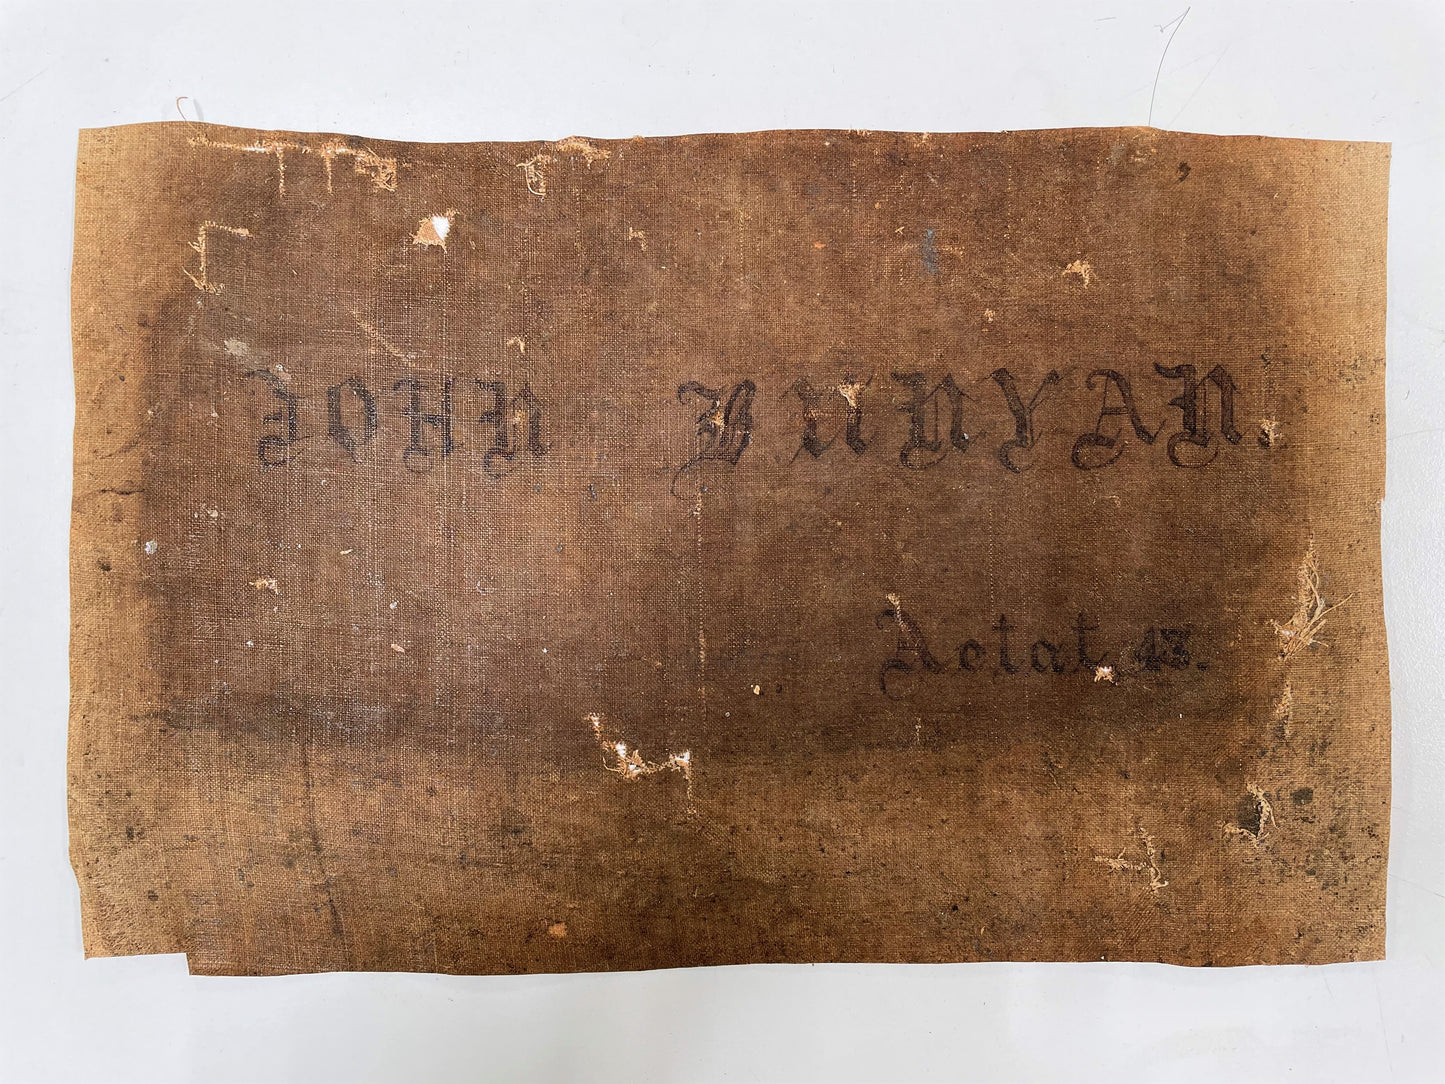 JOHN BUNYAN.
Aetat 43.